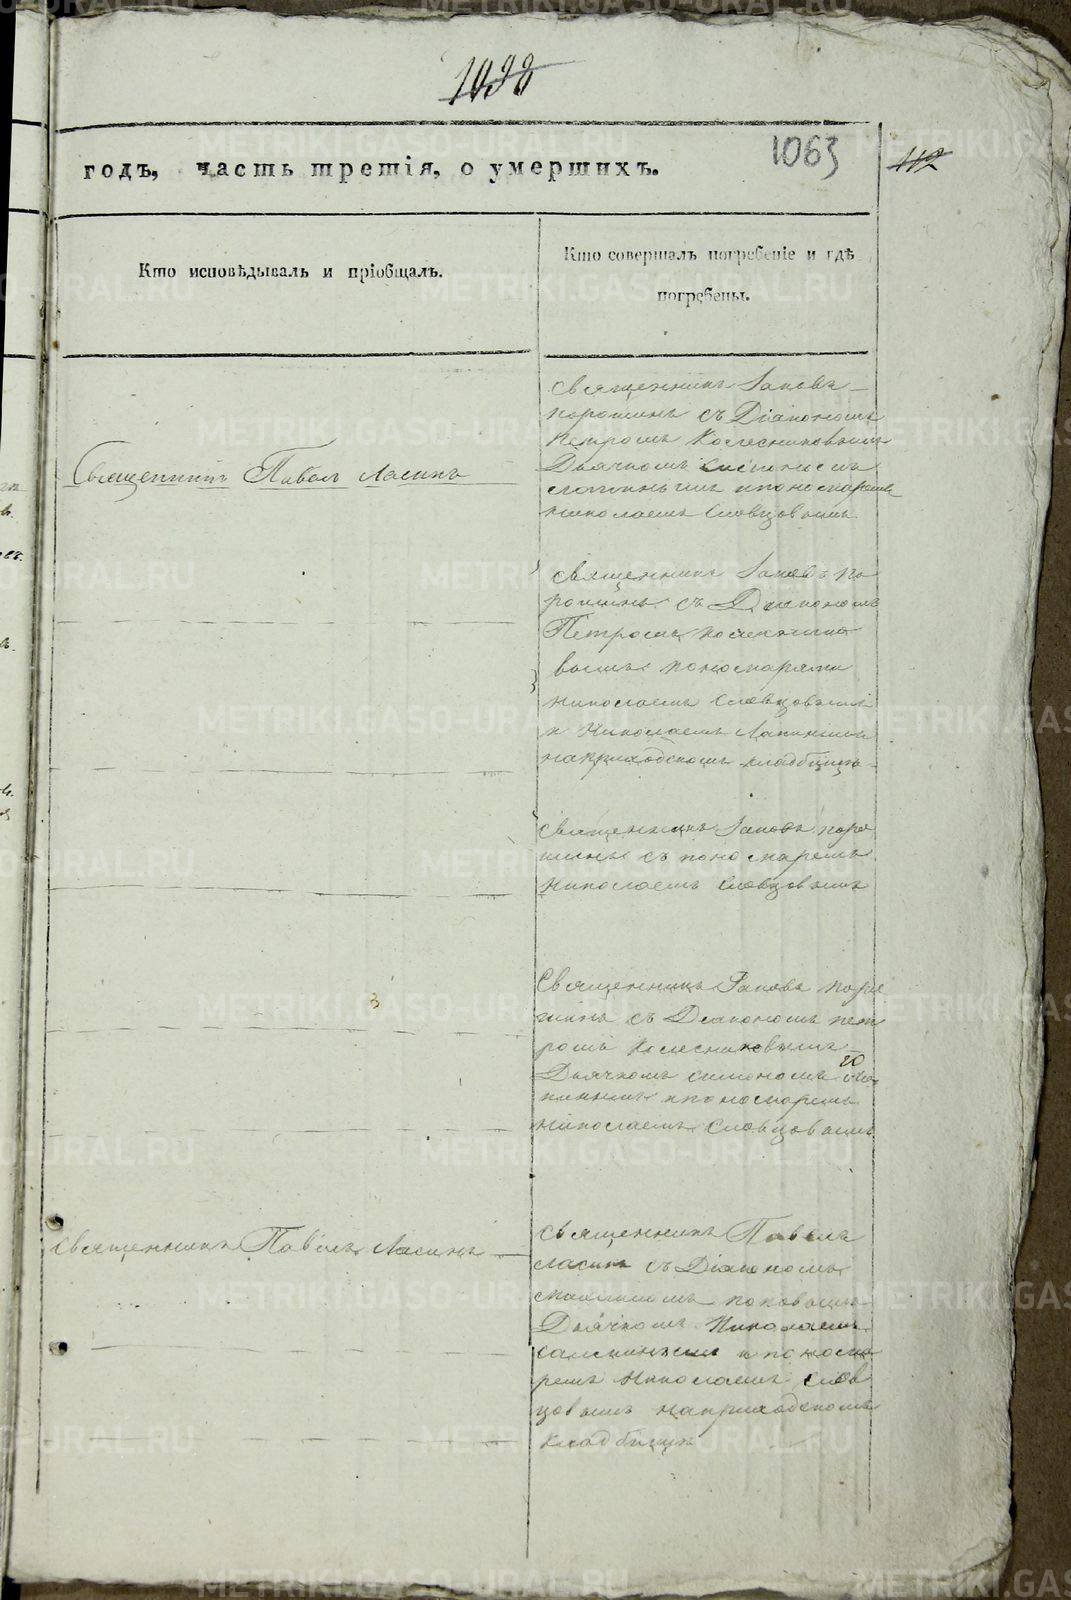 1098
1063
годъ, часть третія, о умершихъ.
112
Кто исповѣдывалъ и пріобщалъ.
Кто совершалъ погребеніе и гдѣ
погребены.
Священникъ Іаковъ
Порошинъ съ Діакономъ
Петромъ Колесниковымъ
Дьячкомъ Симономъ
и пономаремъ
Николаемъ Словцовымъ
Священникъ Павелъ Ласинъ
Священникъ Іаковъ По
рошинъ съ Діакономъ
Петромъ Колеснико
вымъ пономарями
Николаемъ Словцовымъ
и Николаемъ Лапинымъ
на приходскомъ кладбищѣ
Священникъ Іаковъ Поро
шинъ съ пономаремъ
Николаемъ Словцовымъ
Священникъ Іаковъ Поро
шинъ съ Діакономъ Пет
ромъ Колесниковымъ
Дьячкомъ Симономъ
и пономаремъ
Николаемъ Словцовымъ
Священникъ Павелъ Ласинъ
Священникъ Павелъ
Ласинъ съ Діакономъ
Поповымъ
Дьячкомъ Николаемъ
и понома
ремъ Николаемъ Слов
цовымъ на приходскомъ
кладбищѣ
METRIKI.GASO-URAL.RU